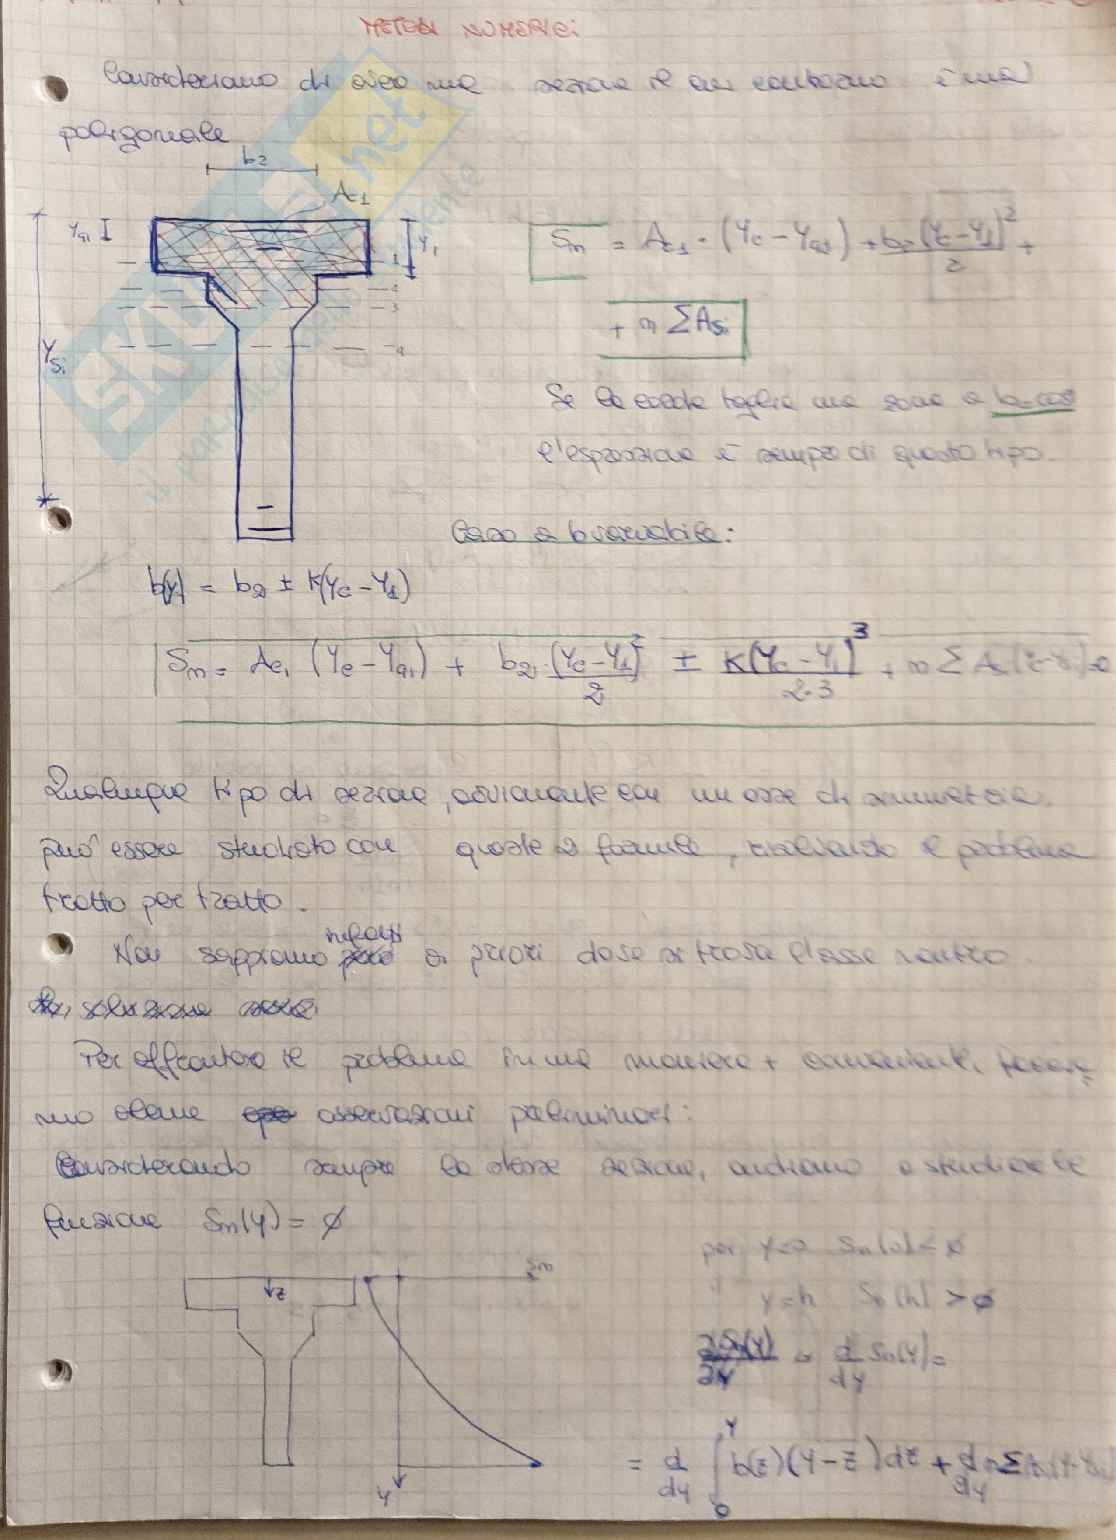 METODI NUMERICI
Consideriamo di avere una sezione il cui contorno è una
poligonale
b2
Ac1
YG1
Y1
1
2
3
4
YSi
Sn = Ac1 · (Yc - YG1) + b2 (Yc - Y1)² / 2 +
+ n ΣASi
Se la corda taglia una zona a b=cost
l'espressione è sempre di questo tipo.
Caso a b variabile:
b(y) = b2 ± K(Yc - Y1)
Sn = Ac1 (Yc - YG1) + b2 · (Yc - Y1)² / 2 ± K(Yc - Y1)³ / 2·3 + n Σ
Qualunque tipo di sezione, ovviamente con un asse di simmetria
può essere studiato con queste 2 formule, risolvendo il problema
tratto per tratto.
Non sappiamo infatti a priori dove si trova l'asse neutro.
soluzione
Per affrontare il problema in una maniera + conveniente, faccia-
mo alcune osservazioni preliminari:
Considerando sempre la stessa sezione, andiamo a studiare la
funzione Sn(y) = ∅
z
Sn
y
per y=0 Sn(0) < ∅
" y=h Sn(h) > ∅
d/dy Sn(y) =
= d/dy ∫₀ʸ b(z)(y - z) dz + d/dy n Σ